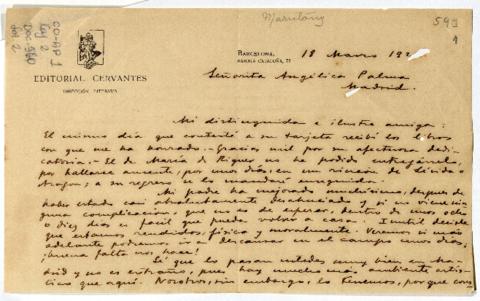 Maristany
591
1
CO-AP 1
Leg 2
Doc. 560
fol. 2
EDITORIAL CERVANTES
DIRECCIÓN LITERARIA
BARCELONA,
RAMBLA CATALUÑA, 72
18 Marzo 192
Señorita Angélica Palma
Madrid.
Mi distinguida e ilustre amiga:
El mismo día que contesté a su tarjeta recibí los libros
con que me ha honrado. Gracias mil por su afectuosa dedi-
catoria. El de María de Riquer no he podido entregárselo,
por hallarse ausente, por unos días, en un rincón de Lérida o
Aragón; a su regreso se lo mandaré enseguida.
Mi padre ha mejorado muchísimo, después de
haber estado casi absolutamente desahuciado y si no viene nin-
guna complicación, que no es de esperar, dentro de unos ocho
o diez días es fácil que pueda volver a casa. Inútil decirle
que estamos rendidos, física y moralmente. Veremos si más
adelante podremos ir a descansar en el campo unos días;
¡buena falta nos hace!
Sé que lo pasan ustedes muy bien en Ma-
drid y no es extraño, pues hay mucho más ambiente artís-
tico que aquí. Nosotros, sin embargo, lo tenemos, porque con